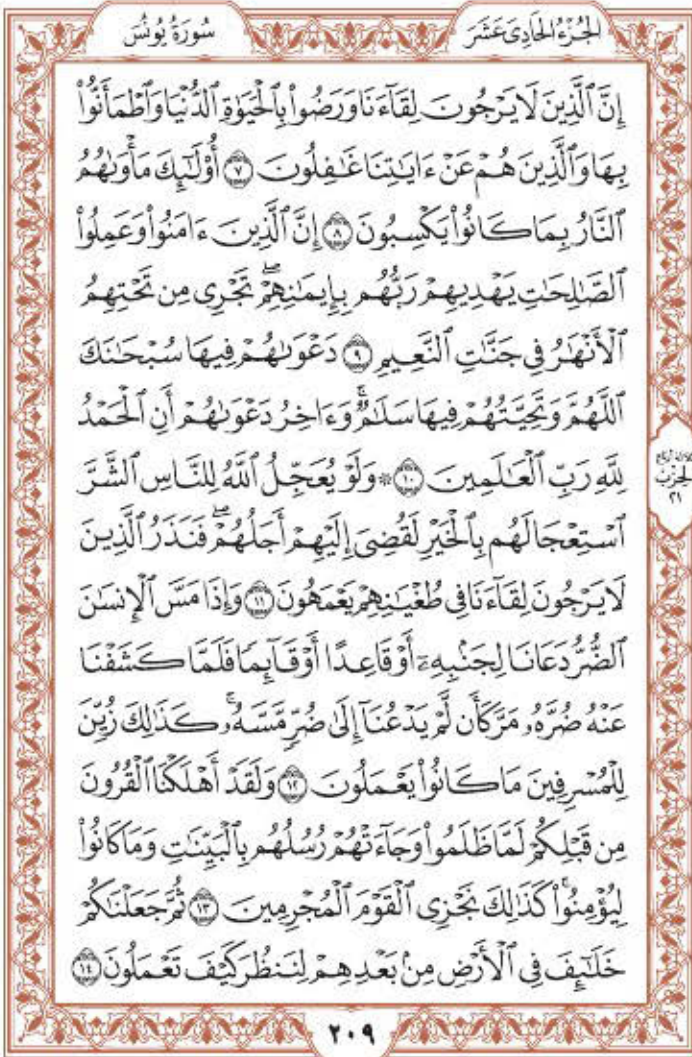 الجُزْءُ الحَادِى عَشَرَ
سُورَةُ يُونُسَ
إِنَّ ٱلَّذِينَ لَا يَرْجُونَ لِقَآءَنَا وَرَضُواْ بِٱلْحَيَوٰةِ ٱلدُّنْيَا وَٱطْمَأَنُّواْ
بِهَا وَٱلَّذِينَ هُمْ عَنْ ءَايَٰتِنَا غَٰفِلُونَ ٧ أُوْلَٰٓئِكَ مَأْوَىٰهُمُ
ٱلنَّارُ بِمَا كَانُواْ يَكْسِبُونَ ٨ إِنَّ ٱلَّذِينَ ءَامَنُواْ وَعَمِلُواْ
ٱلصَّٰلِحَٰتِ يَهْدِيهِمْ رَبُّهُم بِإِيمَٰنِهِمْۖ تَجْرِى مِن تَحْتِهِمُ
ٱلْأَنْهَٰرُ فِى جَنَّٰتِ ٱلنَّعِيمِ ٩ دَعْوَىٰهُمْ فِيهَا سُبْحَٰنَكَ
ٱللَّهُمَّ وَتَحِيَّتُهُمْ فِيهَا سَلَٰمٌۚ وَءَاخِرُ دَعْوَىٰهُمْ أَنِ ٱلْحَمْدُ
لِلَّهِ رَبِّ ٱلْعَٰلَمِينَ ١٠ ۞ وَلَوْ يُعَجِّلُ ٱللَّهُ لِلنَّاسِ ٱلشَّرَّ
ٱسْتِعْجَالَهُم بِٱلْخَيْرِ لَقُضِىَ إِلَيْهِمْ أَجَلُهُمْۖ فَنَذَرُ ٱلَّذِينَ
لَا يَرْجُونَ لِقَآءَنَا فِى طُغْيَٰنِهِمْ يَعْمَهُونَ ١١ وَإِذَا مَسَّ ٱلْإِنسَٰنَ
ٱلضُّرُّ دَعَانَا لِجَنۢبِهِۦٓ أَوْ قَاعِدًا أَوْ قَآئِمًا فَلَمَّا كَشَفْنَا
عَنْهُ ضُرَّهُۥ مَرَّ كَأَن لَّمْ يَدْعُنَآ إِلَىٰ ضُرٍّ مَّسَّهُۥۚ كَذَٰلِكَ زُيِّنَ
لِلْمُسْرِفِينَ مَا كَانُواْ يَعْمَلُونَ ١٢ وَلَقَدْ أَهْلَكْنَا ٱلْقُرُونَ
مِن قَبْلِكُمْ لَمَّا ظَلَمُواْ وَجَآءَتْهُمْ رُسُلُهُم بِٱلْبَيِّنَٰتِ وَمَا كَانُواْ
لِيُؤْمِنُواْۚ كَذَٰلِكَ نَجْزِى ٱلْقَوْمَ ٱلْمُجْرِمِينَ ١٣ ثُمَّ جَعَلْنَٰكُمْ
خَلَٰٓئِفَ فِى ٱلْأَرْضِ مِنۢ بَعْدِهِمْ لِنَنظُرَ كَيْفَ تَعْمَلُونَ ١٤
ثلاثة أرباع
الحزب
٢١
٢٠٩